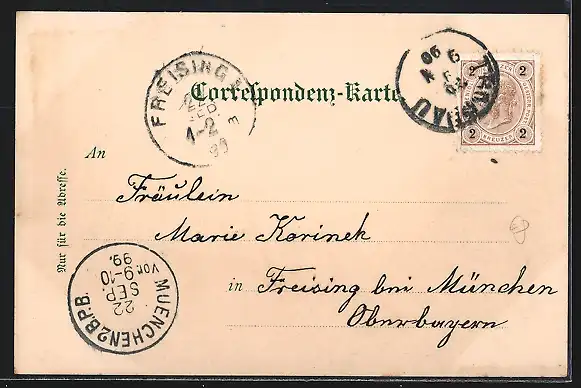 Correspondenz-Karte
FREISING
22
SEP.
1-2
99
3
2 2
2 KREUZER 2
An
Fräulein
Marie Korinek
in Freising bei München
Oberbayern
Nur für die Adresse.
MUENCHEN 2 B.P.B.
22
SEP.
Vor. 9-10
99.